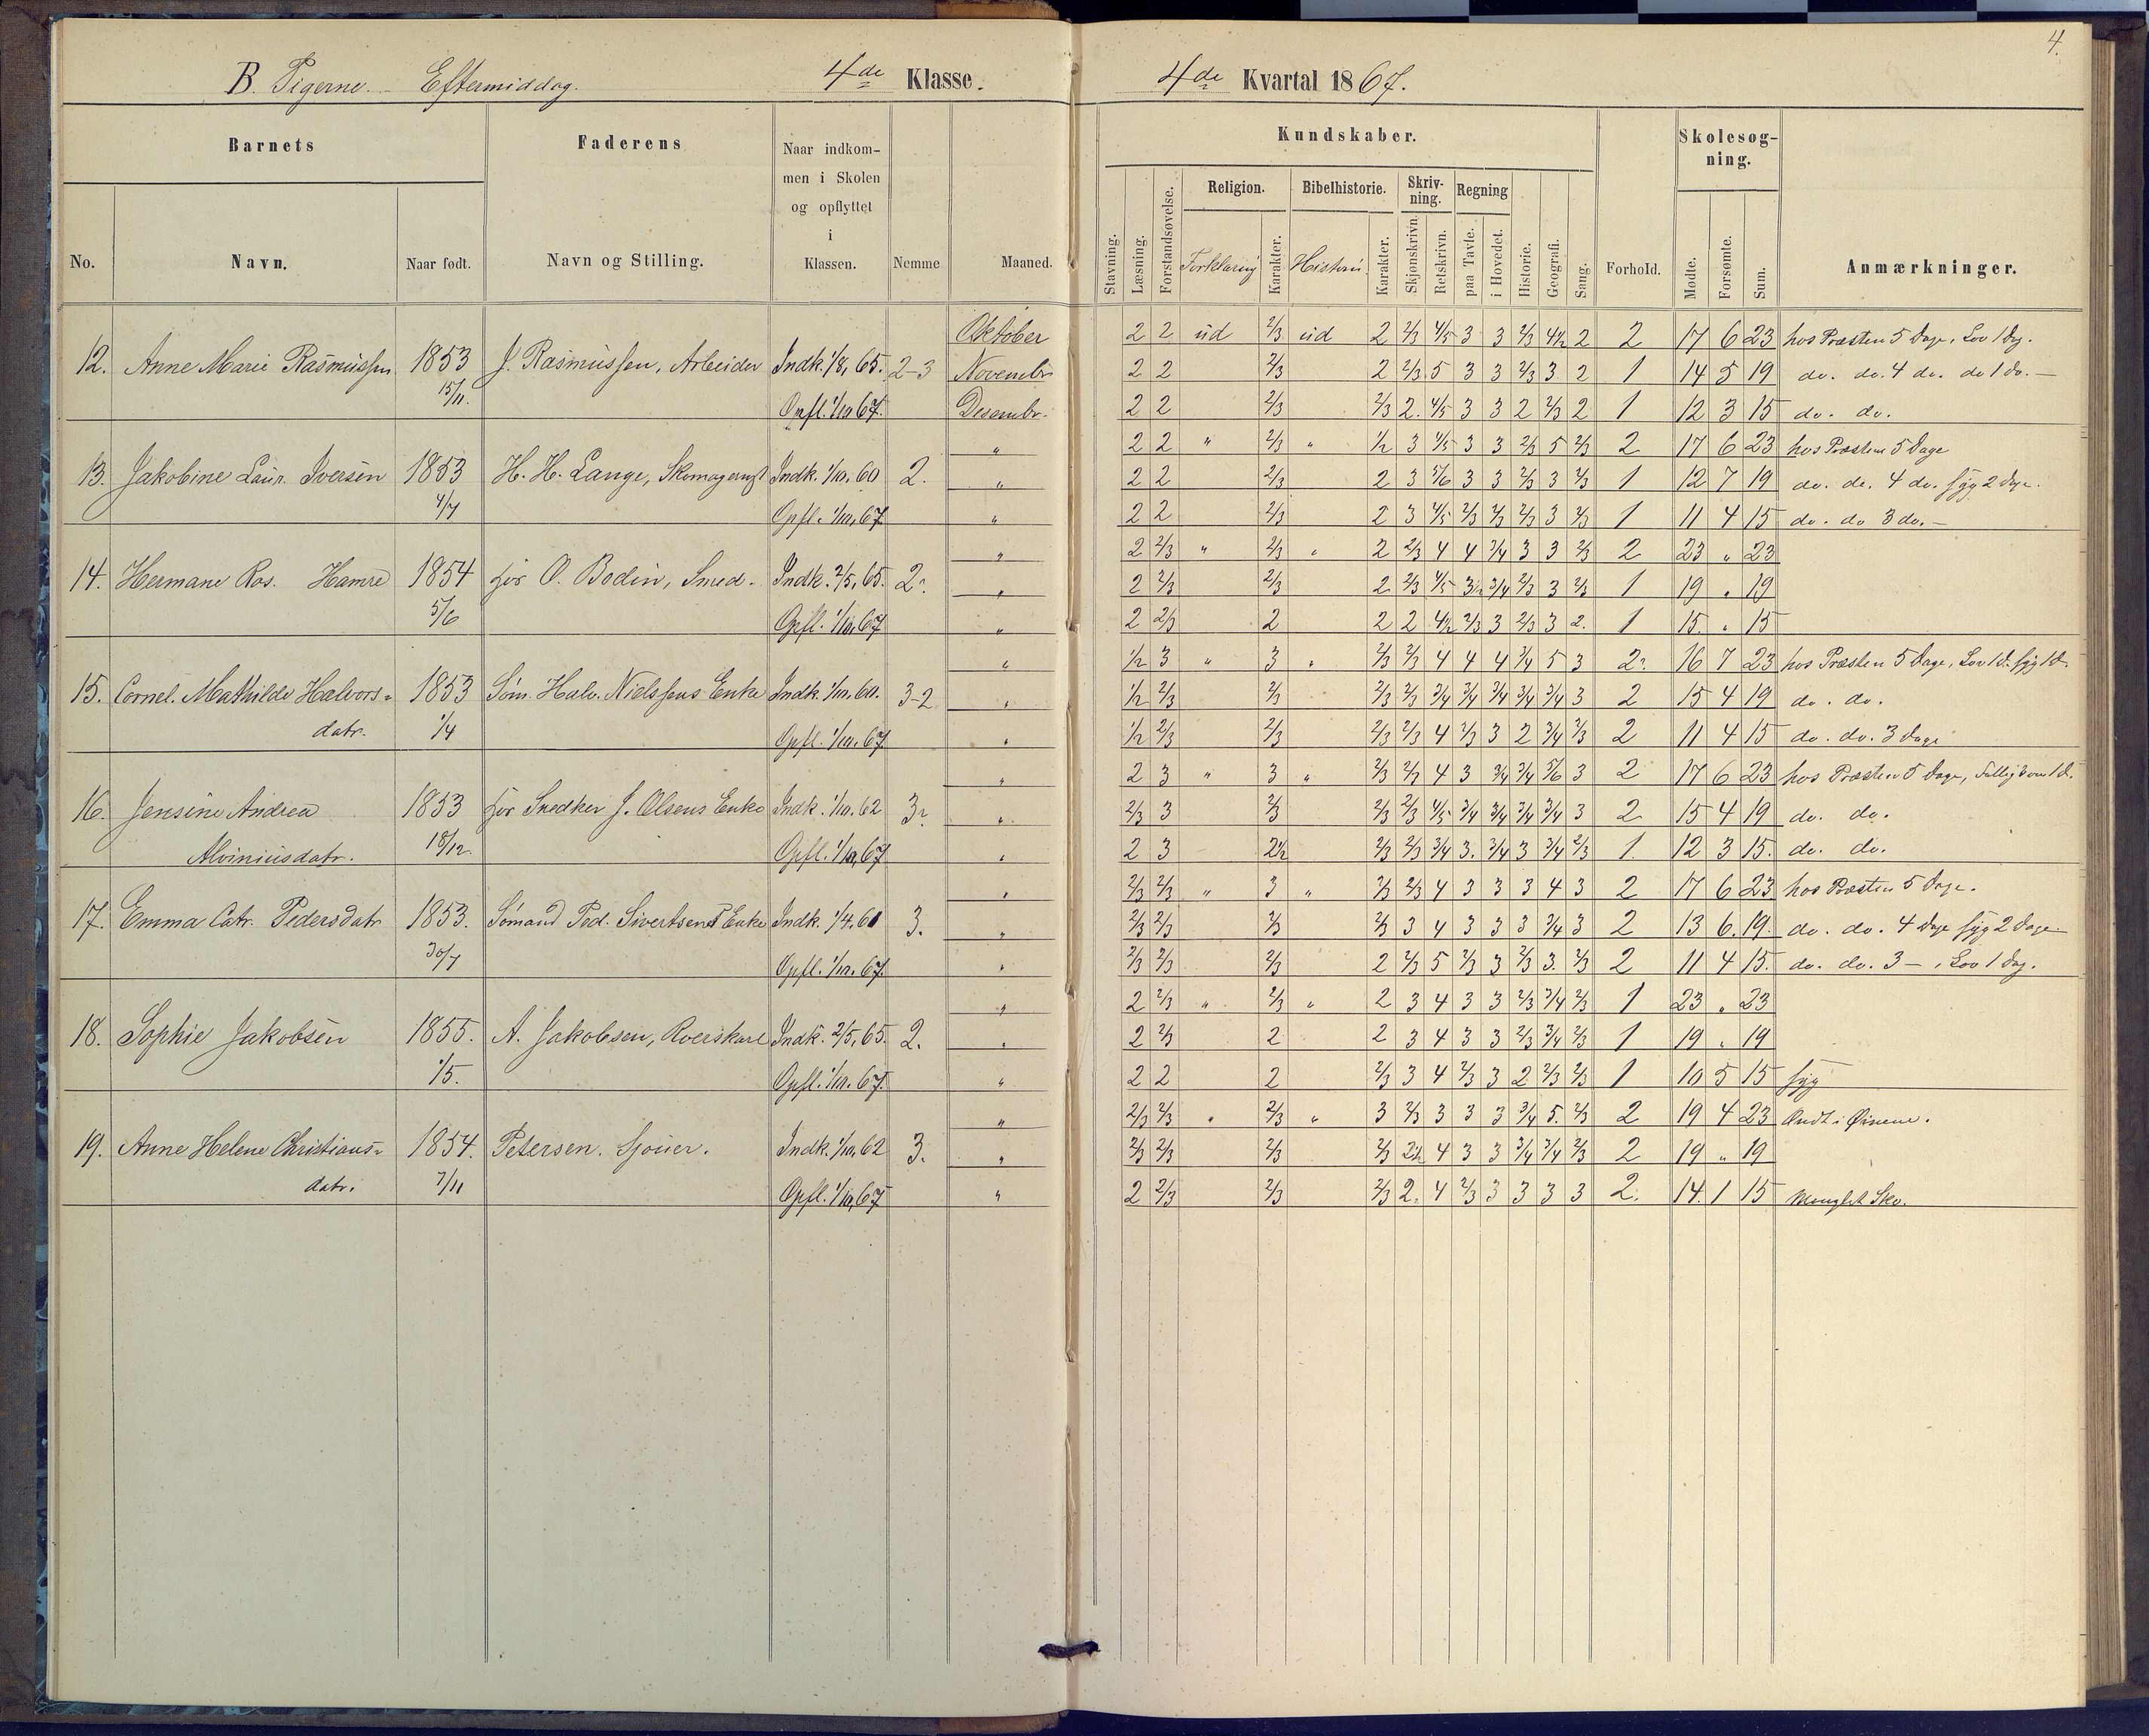 4.
B. Pigerne. Eftermiddag. 4de Klasse.
4de Kvartal 1867.
Barnets
Faderens
Naar indkom-
men i Skolen
og opflyttet
i
Klassen.
No. Navn. Naar født. Navn og Stilling. Nemme Maaned.
Kundskaber.
Skolesøg-
ning.
Religion. Bibelhistorie. Skriv-
ning. Regning
Stavning. Læsning. Forstandsøvelse. Forklaring Karakter. Historie Karakter. Skjønskrivn. Retskrivn. paa Tavle. i Hovedet. Historie. Geografi. Sang. Forhold. Mødte. Forsømte. Sum. Anmærkninger.
Oktober 2 2 ud 2/3 ud 2 2/3 4/5 3 3 2/3 4½ 2 2 17 6 23 hos Præsten 5 Dage, Lov 1 Dag.
12. Anne Marie Rasmussen 1853 J. Rasmussen, Arbeider Indk. 1/8, 65. 2-3 Novembr 2 2 2/3 2 2/3 5 3 3 2/3 3 2 1 14 5 19 do. do. 4 do. do 1 do. —
15/11. Opfl. 1/10 67. Desembr. 2 2 2/3 2/3 2. 4/5 3 3 2 2/3 2 1 12 3 15 do. do.
" 2 2 " 2/3 " ½ 3 4/5 3 3 2/3 5 2/3 2 17 6 23 hos Præsten 5 Dage
13. Jakobine Laur. Iversen 1853 H. H. Lange, Skomagermst Indk. 1/10. 60 2. " 2 2 2/3 2 3 5/6 3 3 2/3 3 2/3 1 12 7 19 do. do. 4 do. syg 2 Dage.
4/7 Opfl. 1/10, 67. " 2 2 2/3 2 3 4/5 2/3 2/3 2/3 3 2/3 1 11 4 15 do. do 3 do. —
" 2 2/3 " 2/3 " 2 2/3 4 4 3/4 3 3 2/3 2 23 " 23
14. Hermane Ros. Hamre 1854 hos O. Bodin, Smed. Indk. 2/5, 65. 2. " 2 2/3 2/3 2 2/3 4/5 3½ 3/4 2/3 3 2/3 1 19 " 19
5/6 Opfl. 1/10, 67 " 2 2/3 2 2 2 4½ 2/3 3 2/3 3 2. 1 15. " 15
" ½ 3 " 3 " 2/3 2/3 4 4 4 3/4 5 3 2. 16 7 23 hos Præsten 5 Dage, Lov 1 D. syg 1 D.
15. Cornel. Mathilde Halvors- 1853 Søm. Halv. Nielssens Enke Indk. 1/10. 60. 3-2 " ½ 2/3 2/3 2/3 2/3 3/4 3/4 3/4 3/4 3/4 3 2 15 4 19 do. do.
datr. 1/4 Opfl. 1/10. 67 " ½ 2/3 2/3 2/3 2/3 4 2/3 3 2 3/4 2/3 2 11 4 15 do. do. 3 Dage
" 2 3 " 3 " 2/3 2/3 4 3 3/4 3/4 5/6 3 2 17 6 23 hos Præsten 5 Dage,
16. Jensine Andrea 1853 hos Snedker J. Olsens Enke Indk. 1/10. 62 3. " 2/3 3 2/3 2/3 2/3 4/5 3/4 3/4 3/4 3/4 3 2 15 4 19 do. do.
Alviniusdatr. 18/12. Opfl. 1/10, 67 " 2 3 2½ 2/3 2/3 3/4 3. 3/4 3 3/4 2/3 1. 12 3 15. do. do.
" 2/3 2/3 " 3 " 2/3 2/3 4 3 3 3 4 3 2 17 6 23 hos Præsten 5 Dage.
17. Emma Catr. Pedersdatr 1853. Sømand Ped. Sivertsens Enke Indk. 1/4. 61 3. " 2/3 2/3 2/3 2/3 3 4 3 3 3 3/4 3 2 13 6. 19. do. do. 4 Dage syg 2 Dage
30/7 Opfl. 1/10. 67. " 2/3 2/3 2/3 2 2/3 5 2/3 3 2/3 3. 2/3 2 11 4 15. do. do. 3 — , Lov 1 Dag.
" 2 2/3 " 2/3 " 2 3 4 3 3 2/3 3/4 2/3 1 23 " 23
18. Sophie Jakobsen 1855. A. Jakobsen, Roerskarl Indk. 2/5, 65. 2. " 2 2/3 2 2 3 4 3 3 2/3 3/4 2/3 1 19 " 19
1/5. Opfl. 1/10. 67. " 2 2 2 2/3 3 4 2/3 3 2 2/3 2/3 1 10 5 15 syg
" 2/3 2/3 " 2/3 " 3 2/3 3 3 3 3/4 5. 2/3 2 19 4 23 Ondt i Øinene.
19. Anne Helene Christians- 1854. Petersen. Sjouer. Indk. 1/10, 62 3. " 2/3 2/3 2/3 2/3 2½ 4 3 3 3/4 3/4 2/3 2 19 " 19
datr. 7/11 Opfl. 1/10, 67 " 2 2/3 2/3 2/3 2. 4 2/3 3 3 3 3 2. 14. 1 15 Manglet Sko.